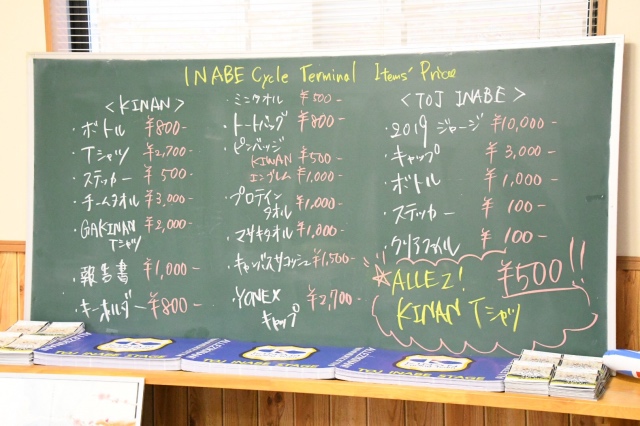 INABE Cycle Terminal Items' Price
<KINAN>
・ボトル ¥800-
・Tシャツ ¥2,700-
・ステッカー ¥500-
・チームタオル ¥3,000-
・GAKINAN Tシャツ ¥2,000-
・報告書 ¥1,000-
・キーホルダー ¥800-
・ミニタオル ¥500-
・トートバッグ ¥800-
・ピンバッジ
KINAN ¥500-
エンブレム ¥1,000-
・プロテイン
タオル ¥1,000-
・マサキタオル ¥1,000-
・キャンバスサコッシュ ¥1,500-
・YONEX
キャップ ¥2,700-
<TOJ INABE>
・2019 ジャージ ¥10,000-
・キャップ ¥3,000-
・ボトル ¥1,000-
・ステッカー ¥100-
・クリアファイル ¥100-
☆ALLEZ! ¥500!!
KINAN Tシャツ
TOJ INABE STAGE
TOJ INABE STAGE
TOJ INABE STAGE